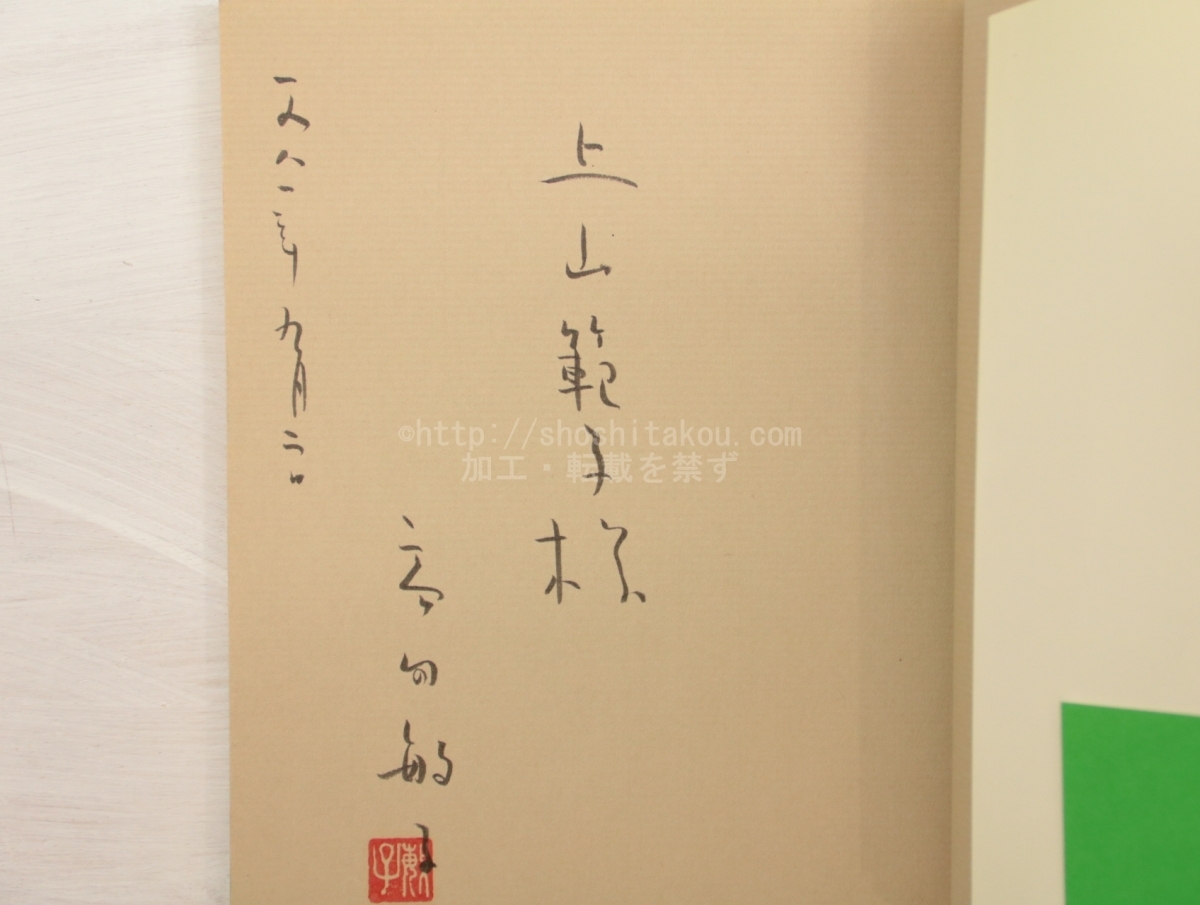 上山範子様
高田敏子
敏子
一九八一年九月二日
©http://shoshitakou.com
加工・転載を禁ず